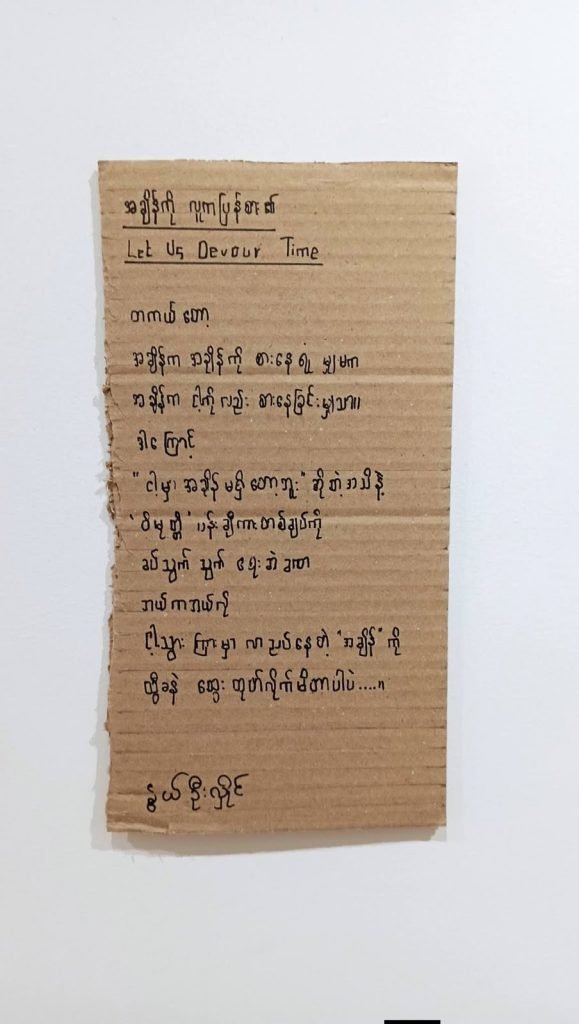 အချိန်ကို လူကပြန်စား၏
Let Us Devour Time
တကယ်တော့
အချိန်က အချိန်ကို စားနေရုံ မျှမက
အချိန်က ငါ့ကိုလည်း စားနေခြင်းမျှသာ။
ဒါကြောင့်
"ငါ့မှာ အချိန်မရှိတော့ဘူး" ဆိုတဲ့အသိနဲ့
'ဝိမုတ္တိ' ပန်းချီကားတစ်ချပ်ကို
ခပ်သွက်သွက် ရေးဆွဲခဏ
ဘယ်ကဘယ်လို
ငါ့သွားကြားမှာ လာညပ်နေတဲ့ "အချိန်" ကို
ထွီခနဲ ထွေးထုတ်လိုက်မိတာပါပဲ....။
နွယ်ဦးလှိုင်